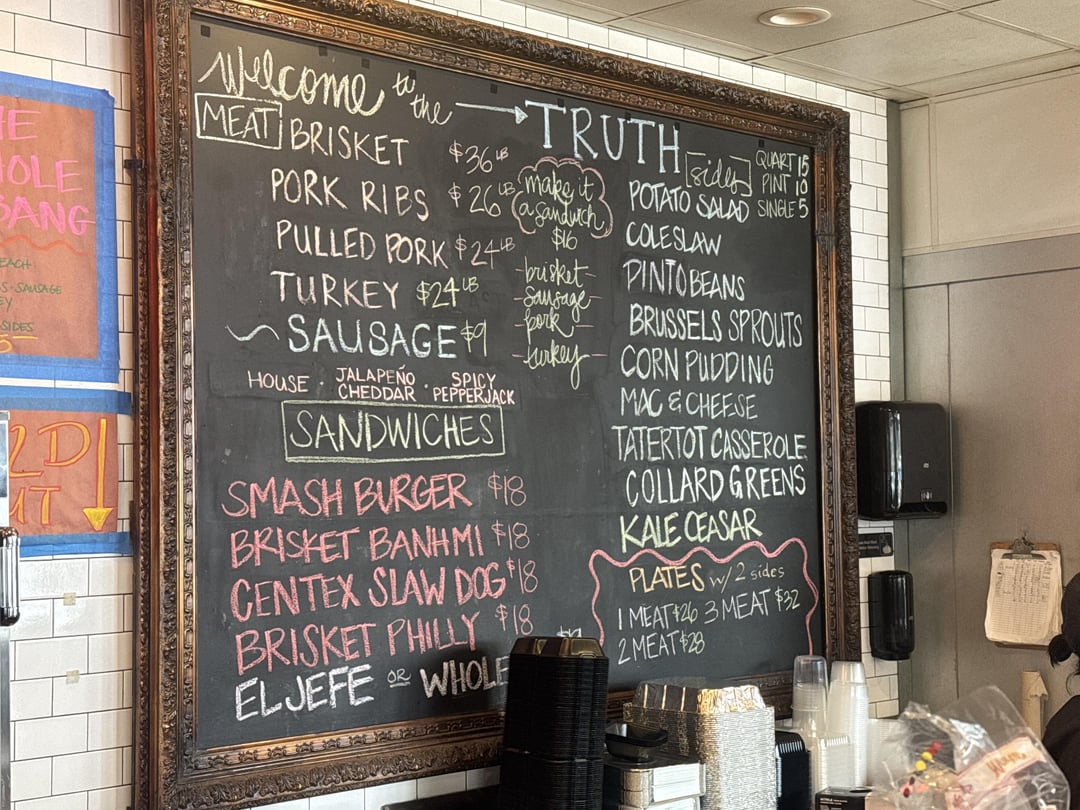 Welcome to the → TRUTH
MEAT BRISKET $36 LB
PORK RIBS $26 LB
PULLED PORK $24 LB
TURKEY $24 LB
SAUSAGE $9
HOUSE · JALAPEÑO CHEDDAR · SPICY PEPPERJACK
make it
a sandwich
$16
brisket
sausage
pork
turkey
SANDWICHES
SMASH BURGER $18
BRISKET BANH MI $18
CENTEX SLAW DOG $18
BRISKET PHILLY $18
EL JEFE OR WHOLE
sides
QUART 15
PINT 10
SINGLE 5
POTATO SALAD
COLESLAW
PINTO BEANS
BRUSSELS SPROUTS
CORN PUDDING
MAC & CHEESE
TATERTOT CASSEROLE
COLLARD GREENS
KALE CEASAR
PLATES w/ 2 sides
1 MEAT $26 3 MEAT $32
2 MEAT $28
BANG
EACH
SAUSAGE
SIDES